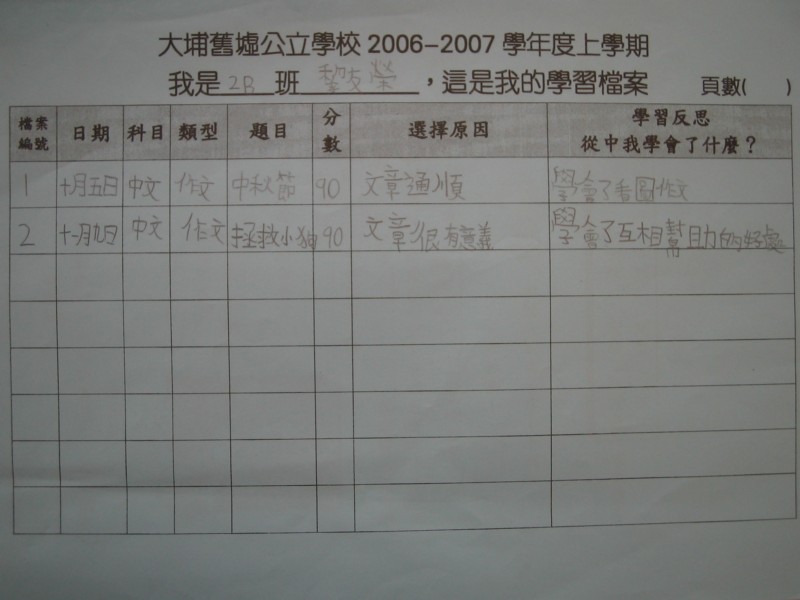 大埔舊墟公立學校 2006-2007 學年度上學期
我是 2B 班 黎友榮 ，這是我的學習檔案 頁數( )
檔案編號 日期 科目 類型 題目 分數 選擇原因 學習反思 從中我學會了什麼？
1 十月五日 中文 作文 中秋節 90 文章通順 學會了看圖作文
2 十一月九日 中文 作文 拯救小狗 90 文章很有意義 學會了互相幫助的好處